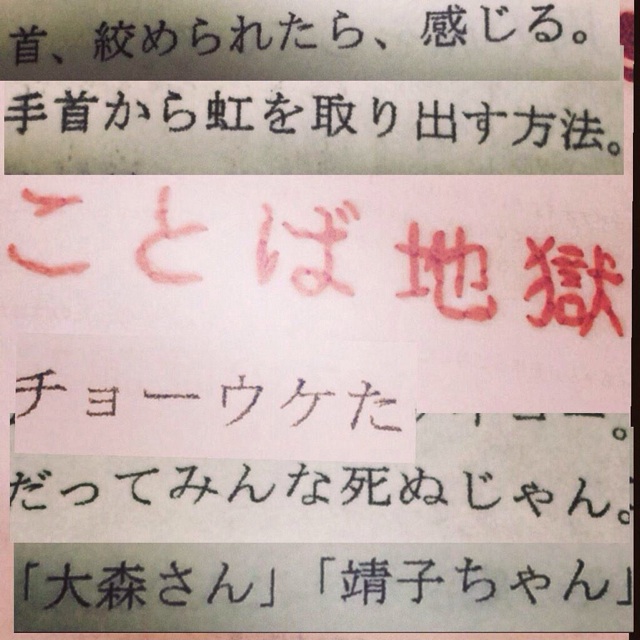 首、絞められたら、感じる。
手首から虹を取り出す方法。
ことば地獄
チョーウケた
だってみんな死ぬじゃん。
「大森さん」「靖子ちゃん」